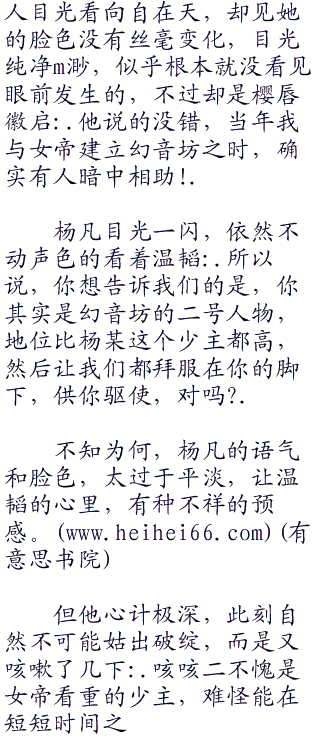 人目光看向自在天，却见她
的脸色没有丝毫变化，目光
纯净m渺，似乎根本就没看见
眼前发生的，不过却是樱唇
徽启:.他说的没错，当年我
与女帝建立幻音坊之时，确
实有人暗中相助!.
杨凡目光一闪，依然不
动声色的看着温韬:.所以
说，你想告诉我们的是，你
其实是幻音坊的二号人物，
地位比杨某这个少主都高，
然后让我们都拜服在你的脚
下，供你驱使，对吗?.
不知为何，杨凡的语气
和脸色，太过于平淡，让温
韬的心里，有种不祥的预
感。(www.heihei66.com)(有
意思书院)
但他心计极深，此刻自
然不可能姑出破绽，而是又
咳嗽了几下:.咳咳二不愧是
女帝看重的少主，难怪能在
短短时间之